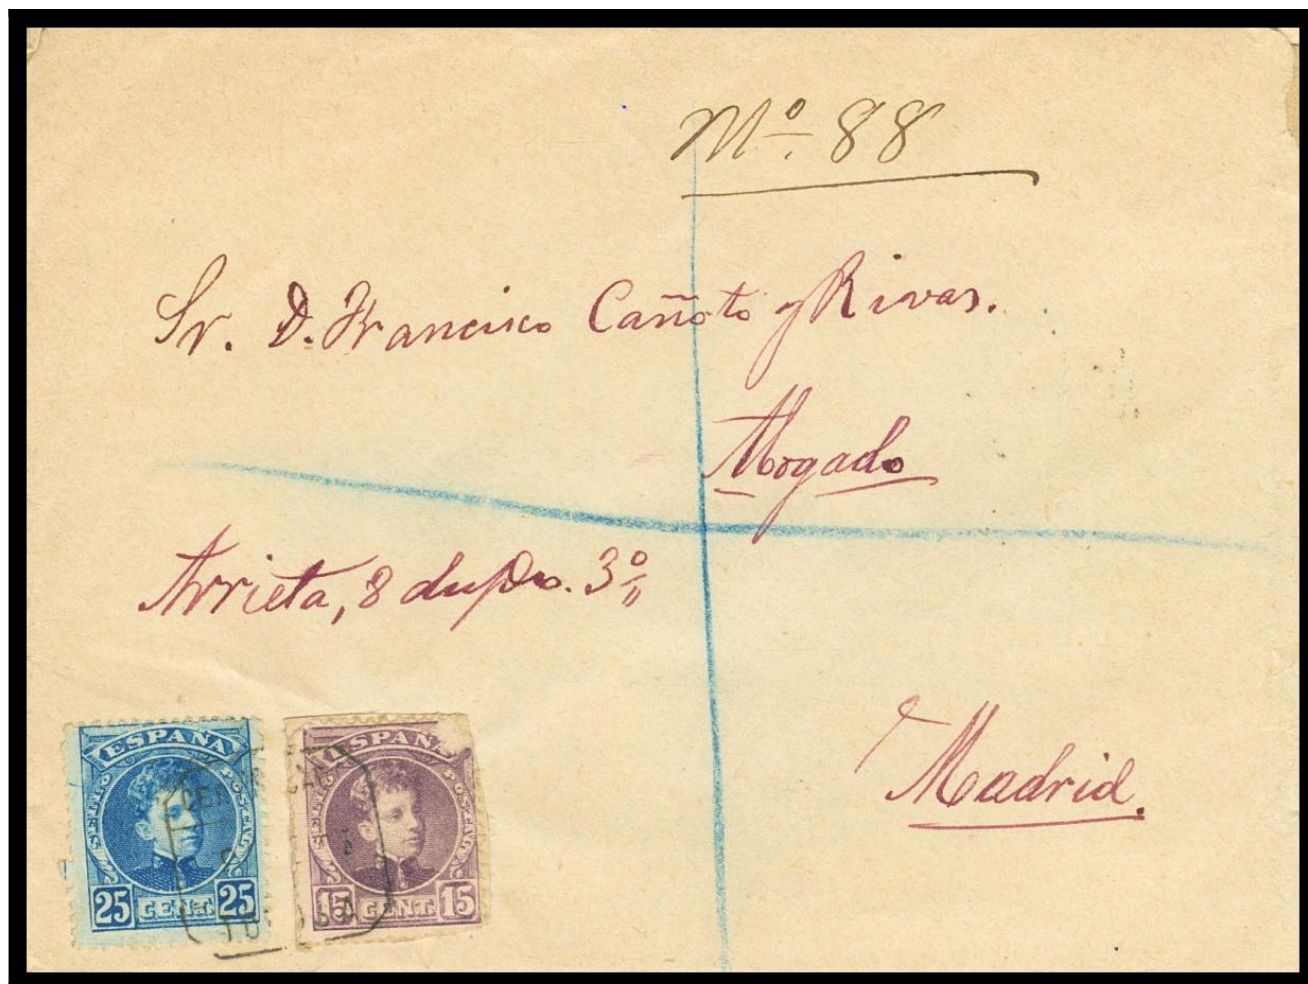 Nº. 88
Sr. D. Francisco Cañoto y Rivas.
Abogado
Arrieta, 8 dupdo. 3º
Madrid.
ESPAÑA
25 CENT. 25
ESPAÑ
15 CENT. 15